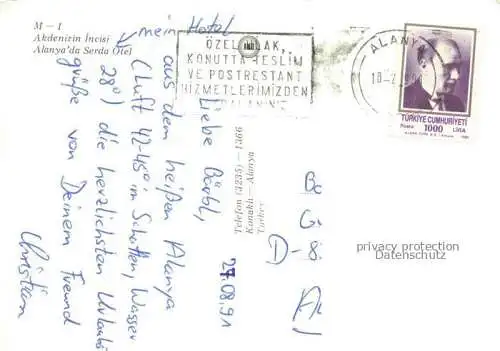 M – 1
Akdenizin İncisi
Alanya'da Serda Otel
mein Hotel
ÖZEL ULAK,
KONUTTA TESLİM
VE POSTRESTANT
HİZMETLERİMİZDEN
ALANYA
TÜRKİYE CUMHURİYETİ
Posta 1000 LİRA
Telefon (3235) – 1366
Konaklı – Alanya
Turkey
27.08.91
Liebe Bärbl,
aus dem heißen Alanya
(Luft 42-45° im Schatten, Wasser
28°) die herzlichsten Urlaubs
grüße von Deinem Freund
Christian
D-8
privacy protection
Datenschutz